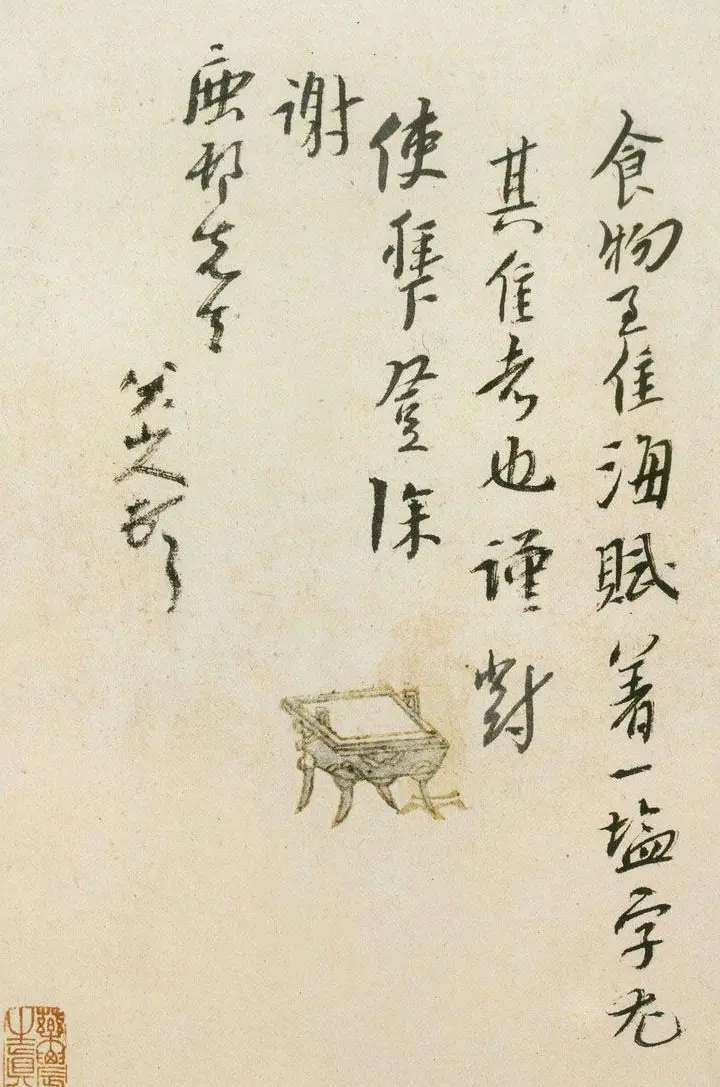 食物至佳海賦着一塩字尤
其佳者也謹對
使拜登除
謝
鹿邨先生
八大山人頓首